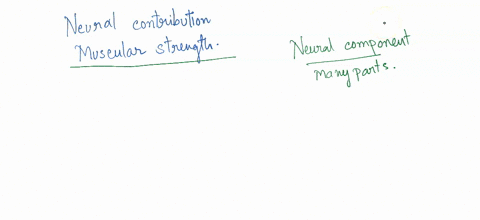 Neural contribution
Muscular strength.
Neural component
many parts.